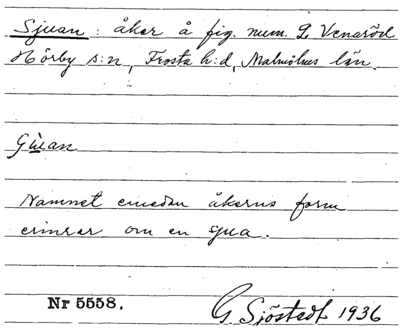 Sjuan: åker å fig. num. 2, Venaröd
Hörby s:n, Frosta h:d, Malmöhus län.
Namnet emedan åkerns form
erinrar om en sjua.
Nr 5558.
G. Sjöstedt 1936